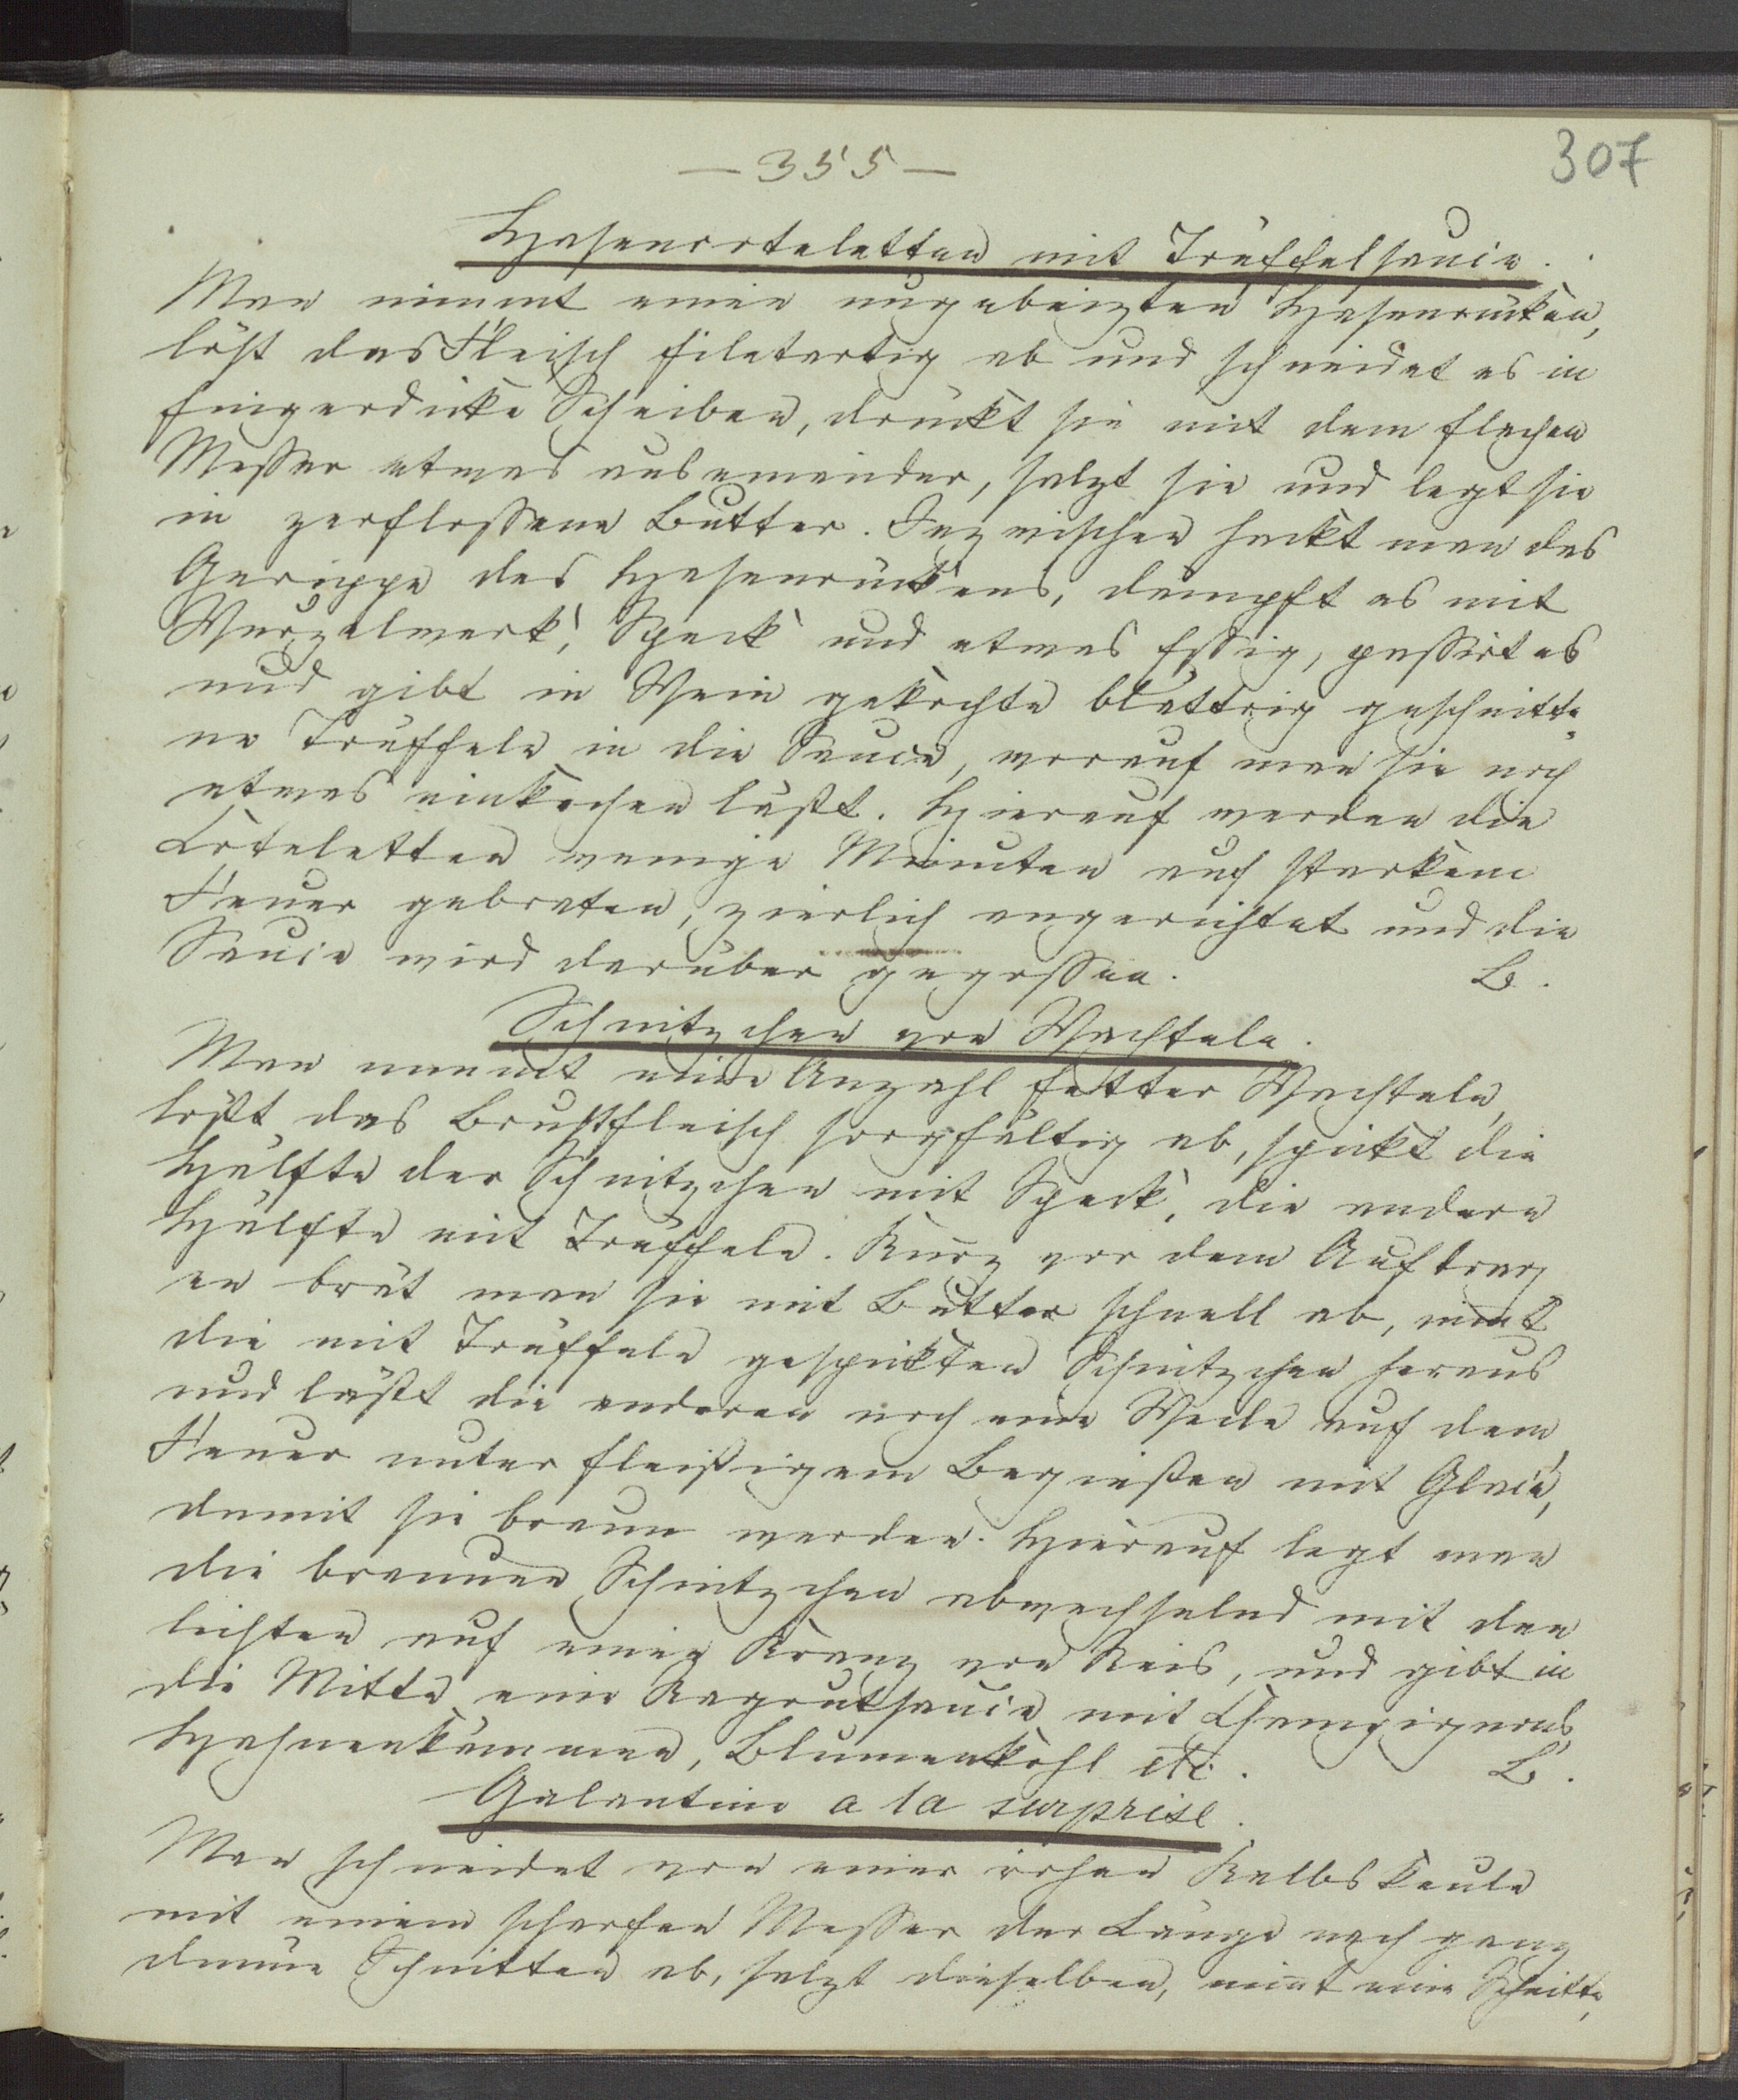 — 355 —
307
Hasencoteletten mit Trüffelsauce.
Man nimmt einen ungebeizten Hasenrücken,
löst das Fleisch filetartig ab und schneidet es in
fingerdicke Scheiben, drückt sie mit dem flachen
Messer etwas auseinander, salzt sie und legt sie
in zerflossene Butter. Inzwischen hackt man das
Gerippe des Hasenrückens, dämpft es mit
Wurzelwerk, Speck und etwas Essig, passirt es
und gibt in Wein gekochte blättrig geschnitte-
ne Trüffeln in die Sauce, worauf man sie noch
etwas einkochen läßt. Hierauf werden die
Coteletten wenige Minuten auf starkem
Feuer gebraten, zierlich angerichtet und die
Sauce wird darüber gegossen. B.
Schnitzchen von Wachteln.
Man nimmt eine Anzahl fetter Wachteln,
löst das Brustfleisch sorgfältig ab, spickt die
Hälfte der Schnitzchen mit Speck, die andere
Hälfte mit Trüffeln. Kurz vor dem Auftrag
en brät man sie mit Butter schnell ab, nim̅t
die mit Trüffeln gespickten Schnitzchen heraus
und läßt die anderen noch eine Weile auf dem
Feuer unter fleißigem Begießen mit Glace,
damit sie braun werden. Hierauf legt man
die braunen Schnitzchen abwechselnd mit den
lichten auf einen Kranz von Reis, und gibt in
die Mitte eine Ragoutsauce mit Champignons,
Hahnenkämmen, Blumenkohl etc. B.
Galantine a la surprise.
Man schneidet von einer rohen Kalbskeule
mit einem scharfen Messer der Länge nach ganz
dünne Schnitten ab, salzt dieselben, nim̅t eine Schnitte,